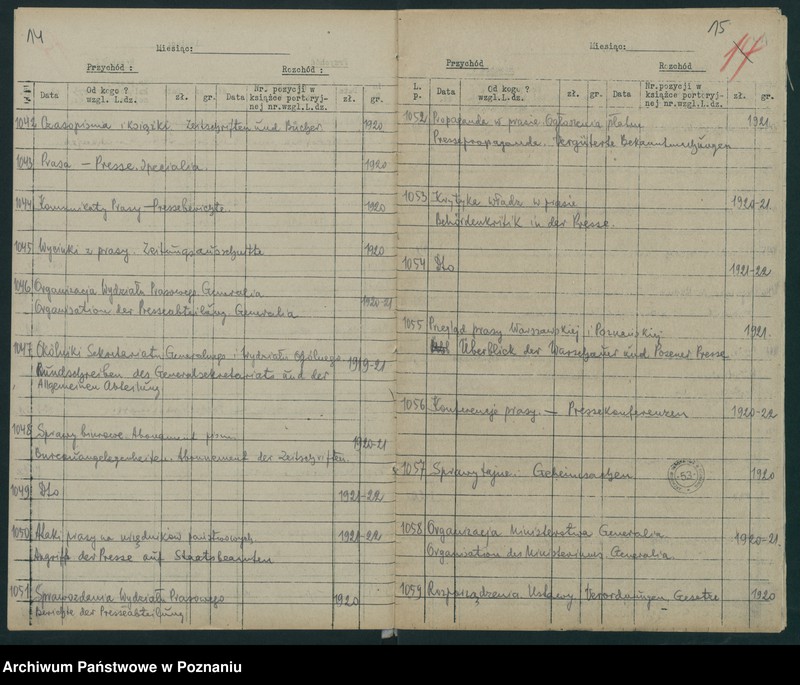 14
Miesiąc:
Przychód :
Rozchód :
Data
Od kogo ?
wzgl. L.dz.
zł.
gr.
Data
Nr. pozycji w
książce portoryj-
nej nr.wzgl.L.dz.
zł.
gr.
1042 Czasopisma i Książki Zeitschriften und Bücher 1920
1043 Prasa – Presse. Specialia. 1920
1044 Komunikaty Prasy – Presseberichte. 1920
1045 Wycinki z prasy. Zeitungsausschnitte 1920
1046 Organizacja Wydziału Prasowego. Generalia 1920-21
Organisation der Presseabteilung. Generalia
1047 Okólniki Sekretariatu Generalnego i Wydziału ogólnego 1919-21
Rundschreiben des Generalsekretariats und der
Allgemeinen Abteilung
1048 Sprawy biurowe. Abonament pism. 1920-21
Bureauangelegenheiten. Abonnement der Zeitschriften.
1049 Dto 1921-22
1050 Ataki prasy na urzędników państwowych 1921-22
Angriffe der Presse auf Staatsbeamten
1051 Sprawozdania Wydziału Prasowego 1920
Berichte der Presseabteilung
15
14
Miesiąc:
Przychód
Rozchód
L.
p.
Data
Od kogo ?
wzgl.L.dz.
zł.
gr.
Data
Nr.pozycji w
książce portoryj-
nej nr.wzgl.L.dz.
zł.
gr.
1052 Propaganda w prasie. Ogłoszenia płatne 1921
Pressepropaganda. Vergüterte Bekanntmachungen
1053 Krytyka władz w prasie 1920-21.
Behördenkritik in der Presse.
1054 Dto 1921-22
1055 Przegląd prasy Warszawskiej i Poznańskiej 1921.
Überblick der Warschauer und Posener Presse
1056 Konferencje prasy. – Pressekonferenzen 1920-22
1057 Sprawy tajne. Geheimsachen 1920
53
1058 Organizacja Ministerstwa Generalia. 1920-21.
Organisation des Ministeriums. Generalia.
1059 Rozporządzenia. Ustawy Verordnungen Gesetze 1920
Archiwum Państwowe w Poznaniu